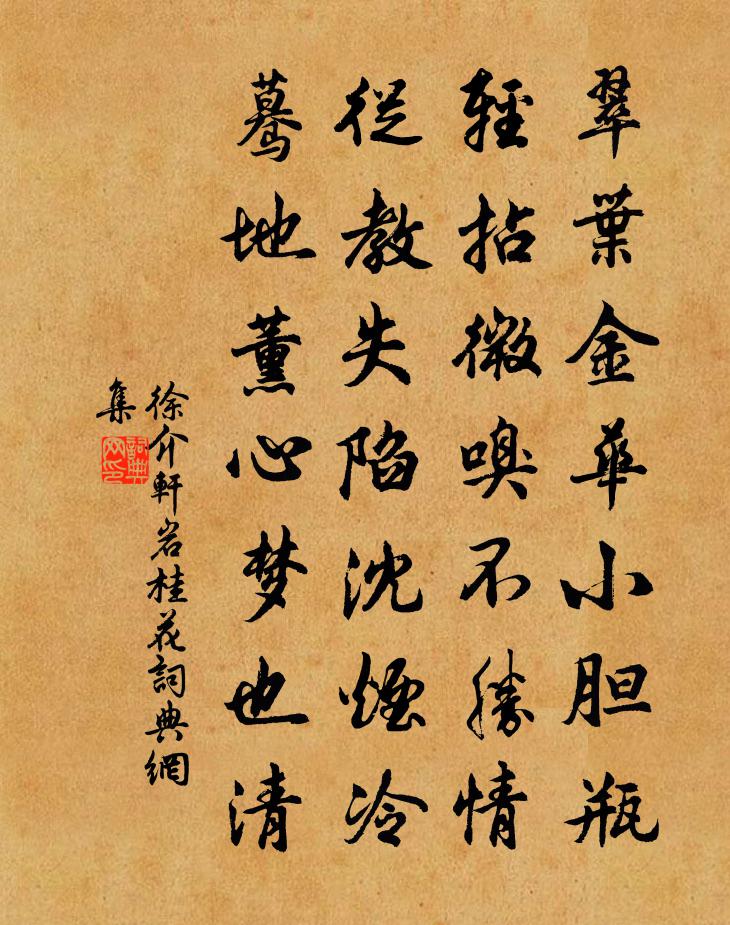 翠葉金華小胆瓶
輕拈微嗅不勝情
從教失陷沈煙冷
驀地薰心梦也清
徐介軒岩桂花詞典網
集
詞典网印